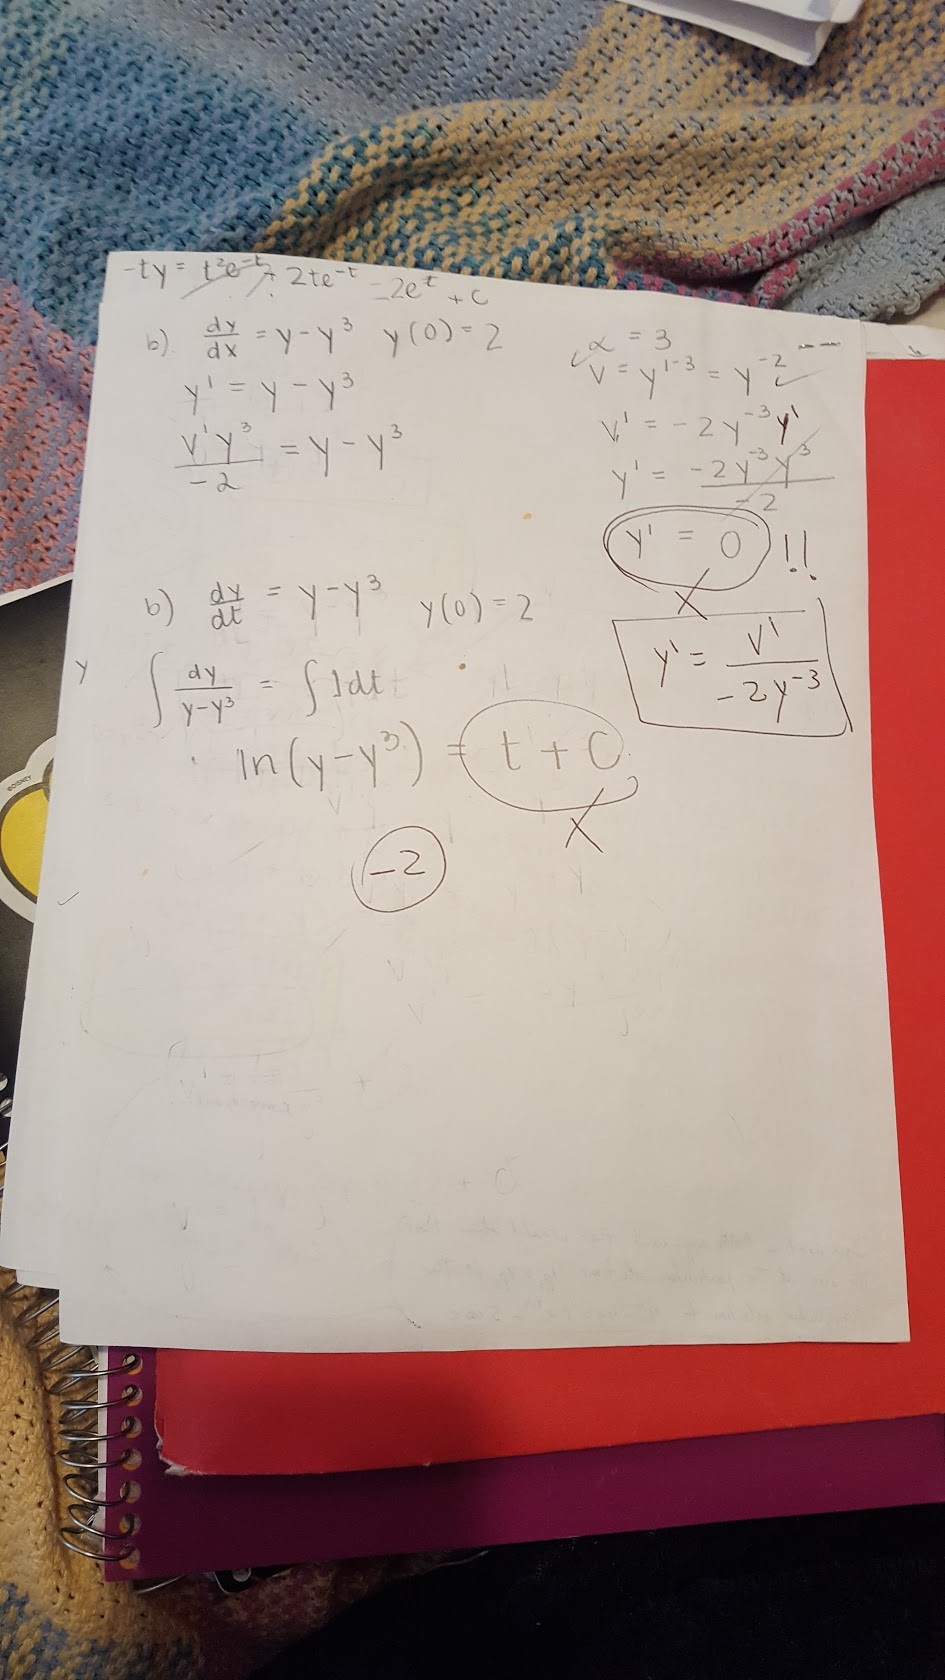 -ty = t²e⁻ᵗ + 2te⁻ᵗ - 2eᵗ + C
b) dy/dx = y - y³ y(0) = 2
y' = y - y³
v'y³/-2 = y - y³
α = 3
v = y¹⁻³ = y⁻²
v' = -2y⁻³y'
y' = -2y⁻³y³/-2
y' = 0 !!
X
y' = v'/-2y⁻³
b) dy/dt = y - y³ y(0) = 2
y ∫ dy/y-y³ = ∫ 1dt
ln(y - y³) = t + C
X
-2
©DISNEY